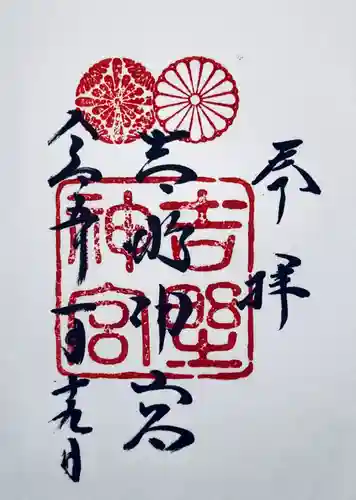 奉拝
吉野神宮
令和五年一月十九日
吉野
神宮